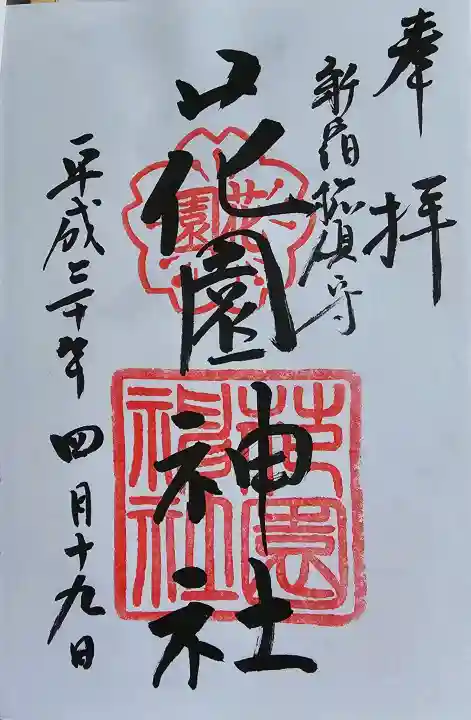 奉拝
新宿総鎮守
花園神社
花園
花園神社
平成三十年四月十九日